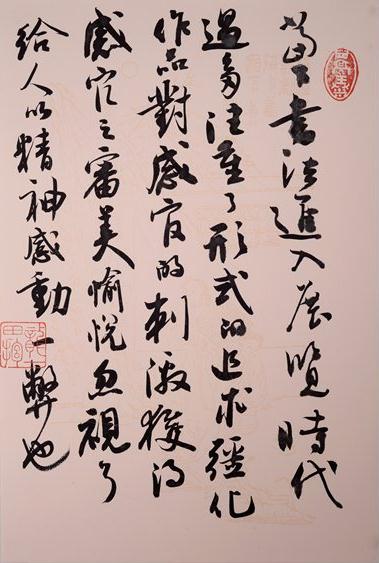 當下書法進入展覽時代
過多注重了形式的追求強化
作品對感官的刺激獲得
感官之審美愉悅忽視了
給人以精神感動一弊也